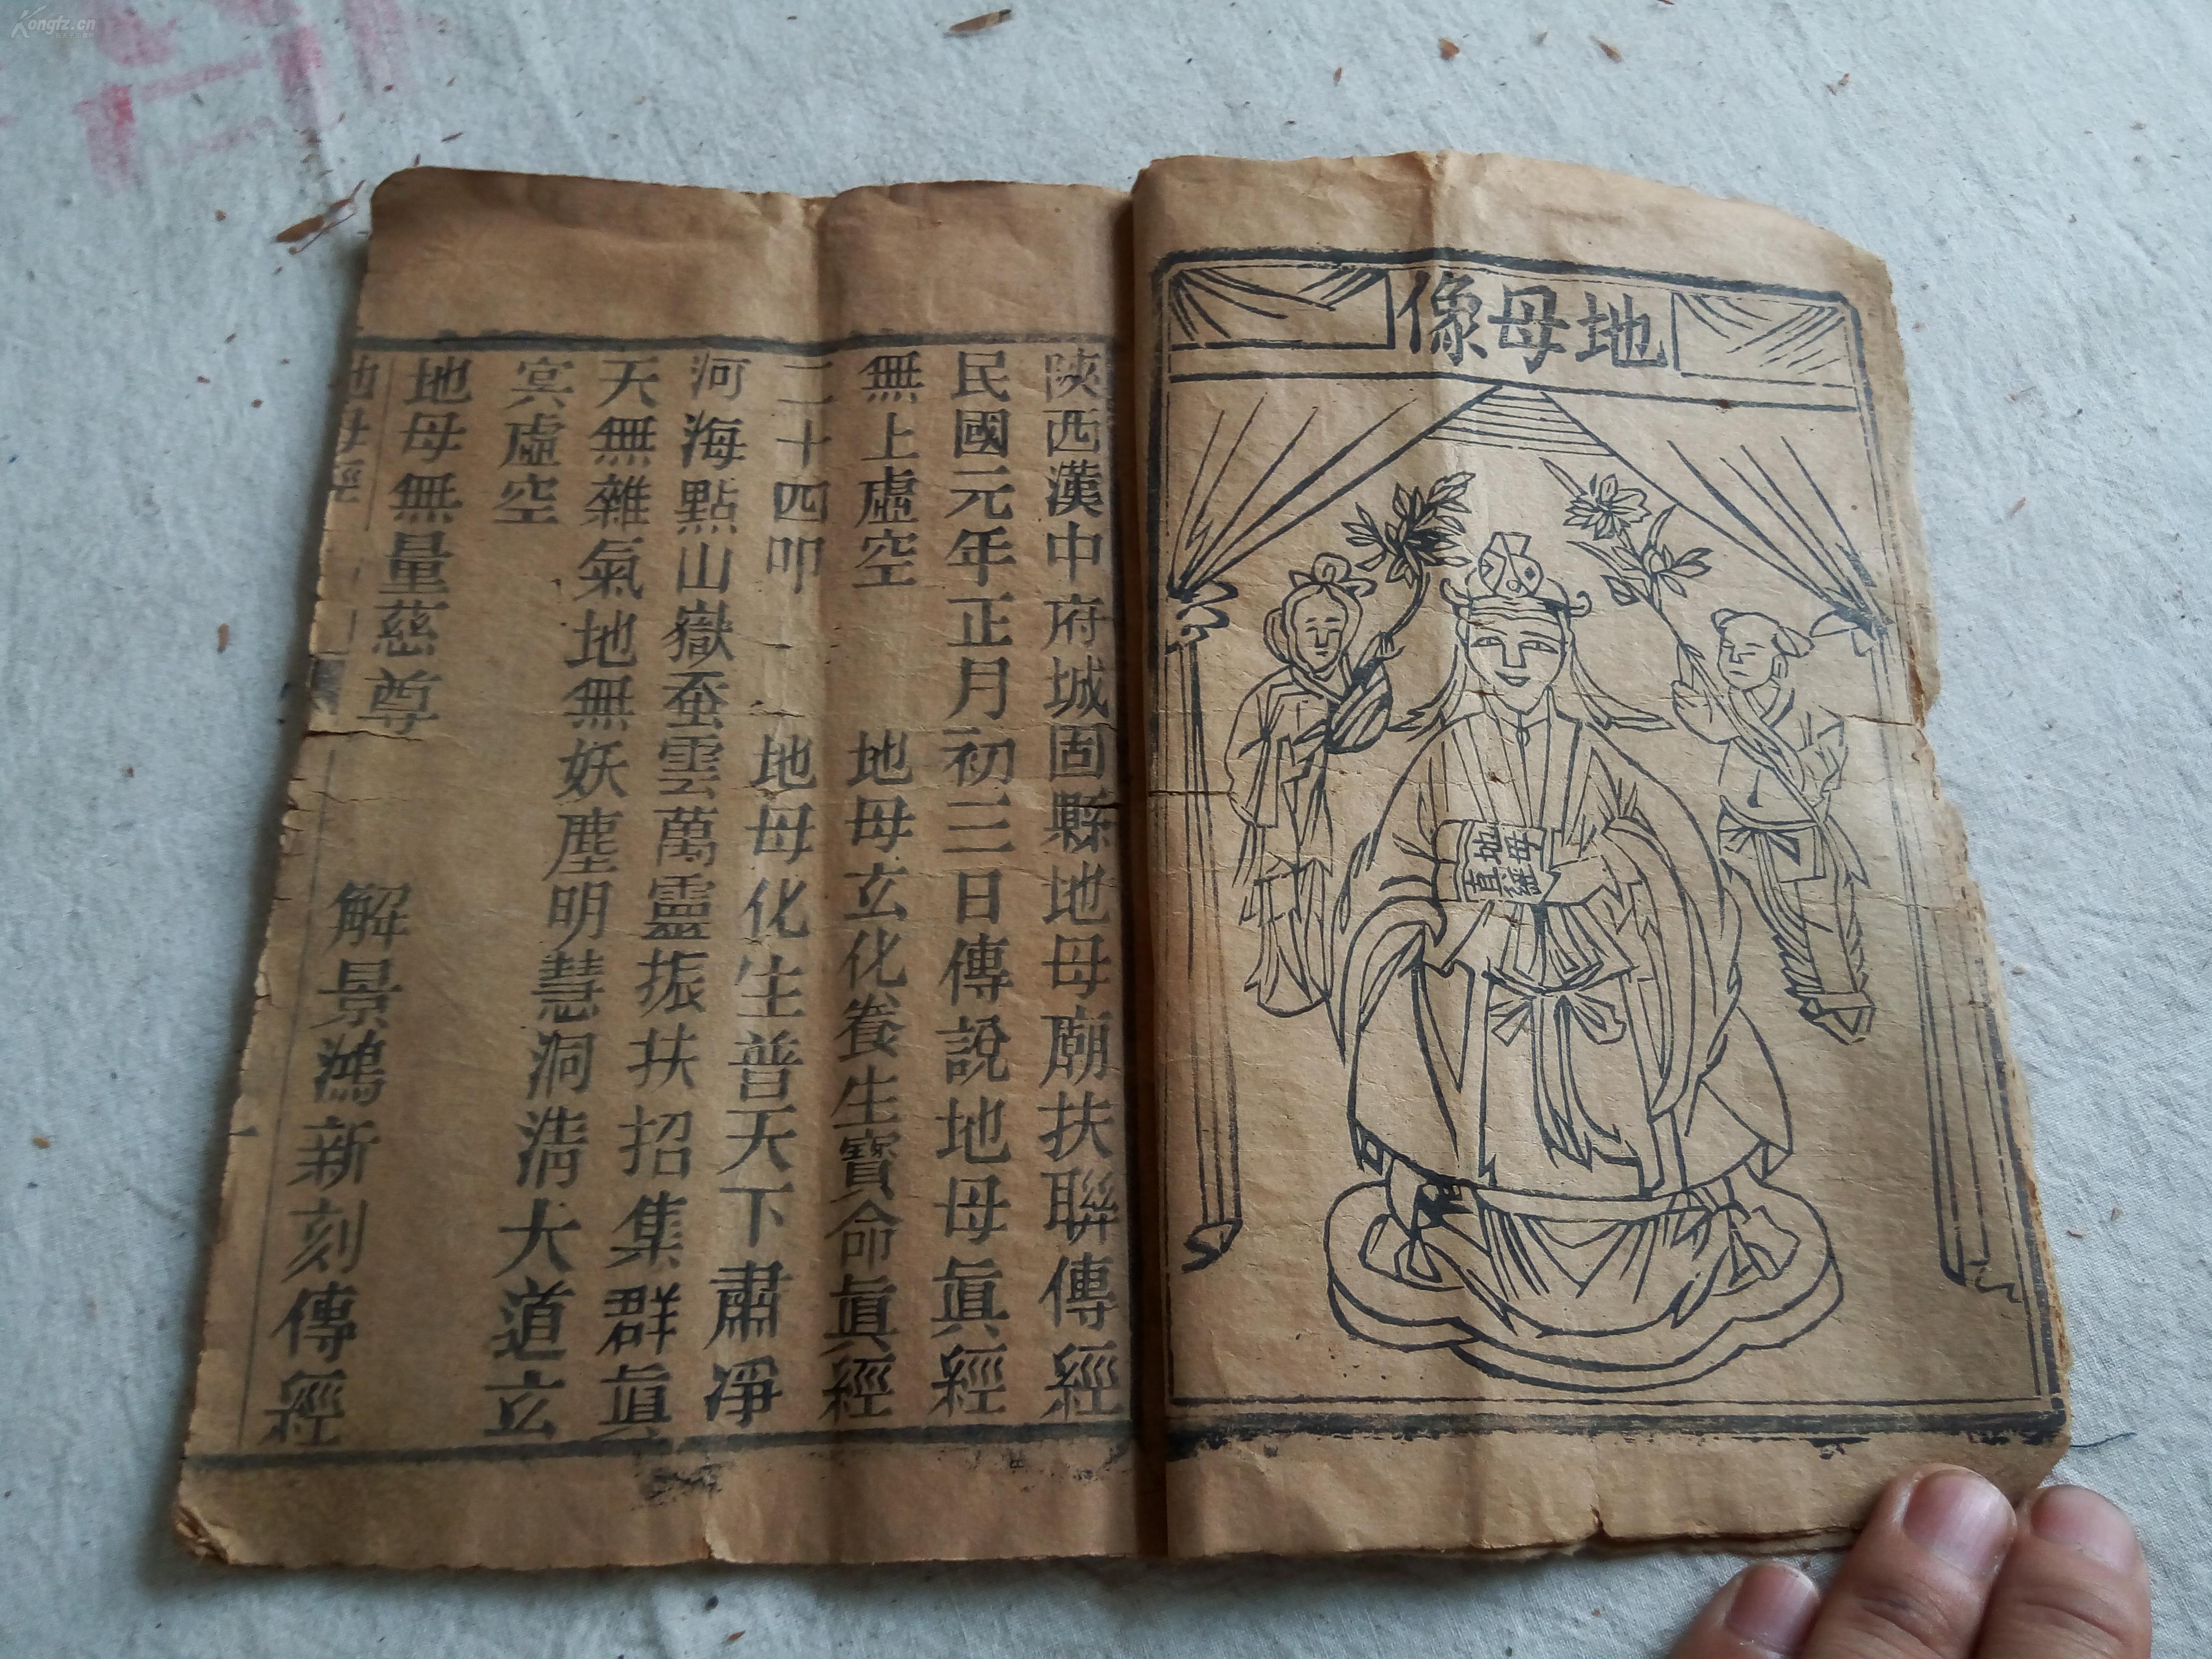 地母像
地母
真經
陝西漢中府城固縣地母廟扶聯傳經
民國元年正月初三日傳說地母眞經
無上虛空 地母玄化養生寶命眞經
二十四叩 地母化生普天下肅凈
河海點山嶽蚕雲萬靈振扶招集群眞
天無雜氣地無妖塵明慧洞淸大道玄
㝠虛空
地母無量慈尊 解景鴻新刻傳經
地母經
一
Kongfz.cn